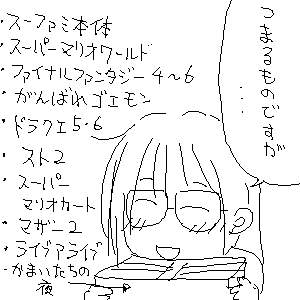 つまるものですが
・・・
・スーファミ本体
・スーパーマリオワールド
・ファイナルファンタジー4～6
・がんばれゴエモン
・ドラクエ5・6
・スト2
・スーパー
マリオカート
・マザー2
・ライブアライブ
・かまいたちの
夜